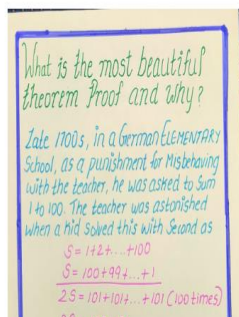 What is the most beautiful
theorem Proof and Why?
Late 1700s, in a German ELEMENTARY
School, as a punishment for Misbehaving
with the teacher, he was asked to Sum
1 to 100. The teacher was astonished
when a kid solved this with Second as
S = 1+2+...+100
S = 100+99+...+1
2S = 101+101+...+101 (100 times)